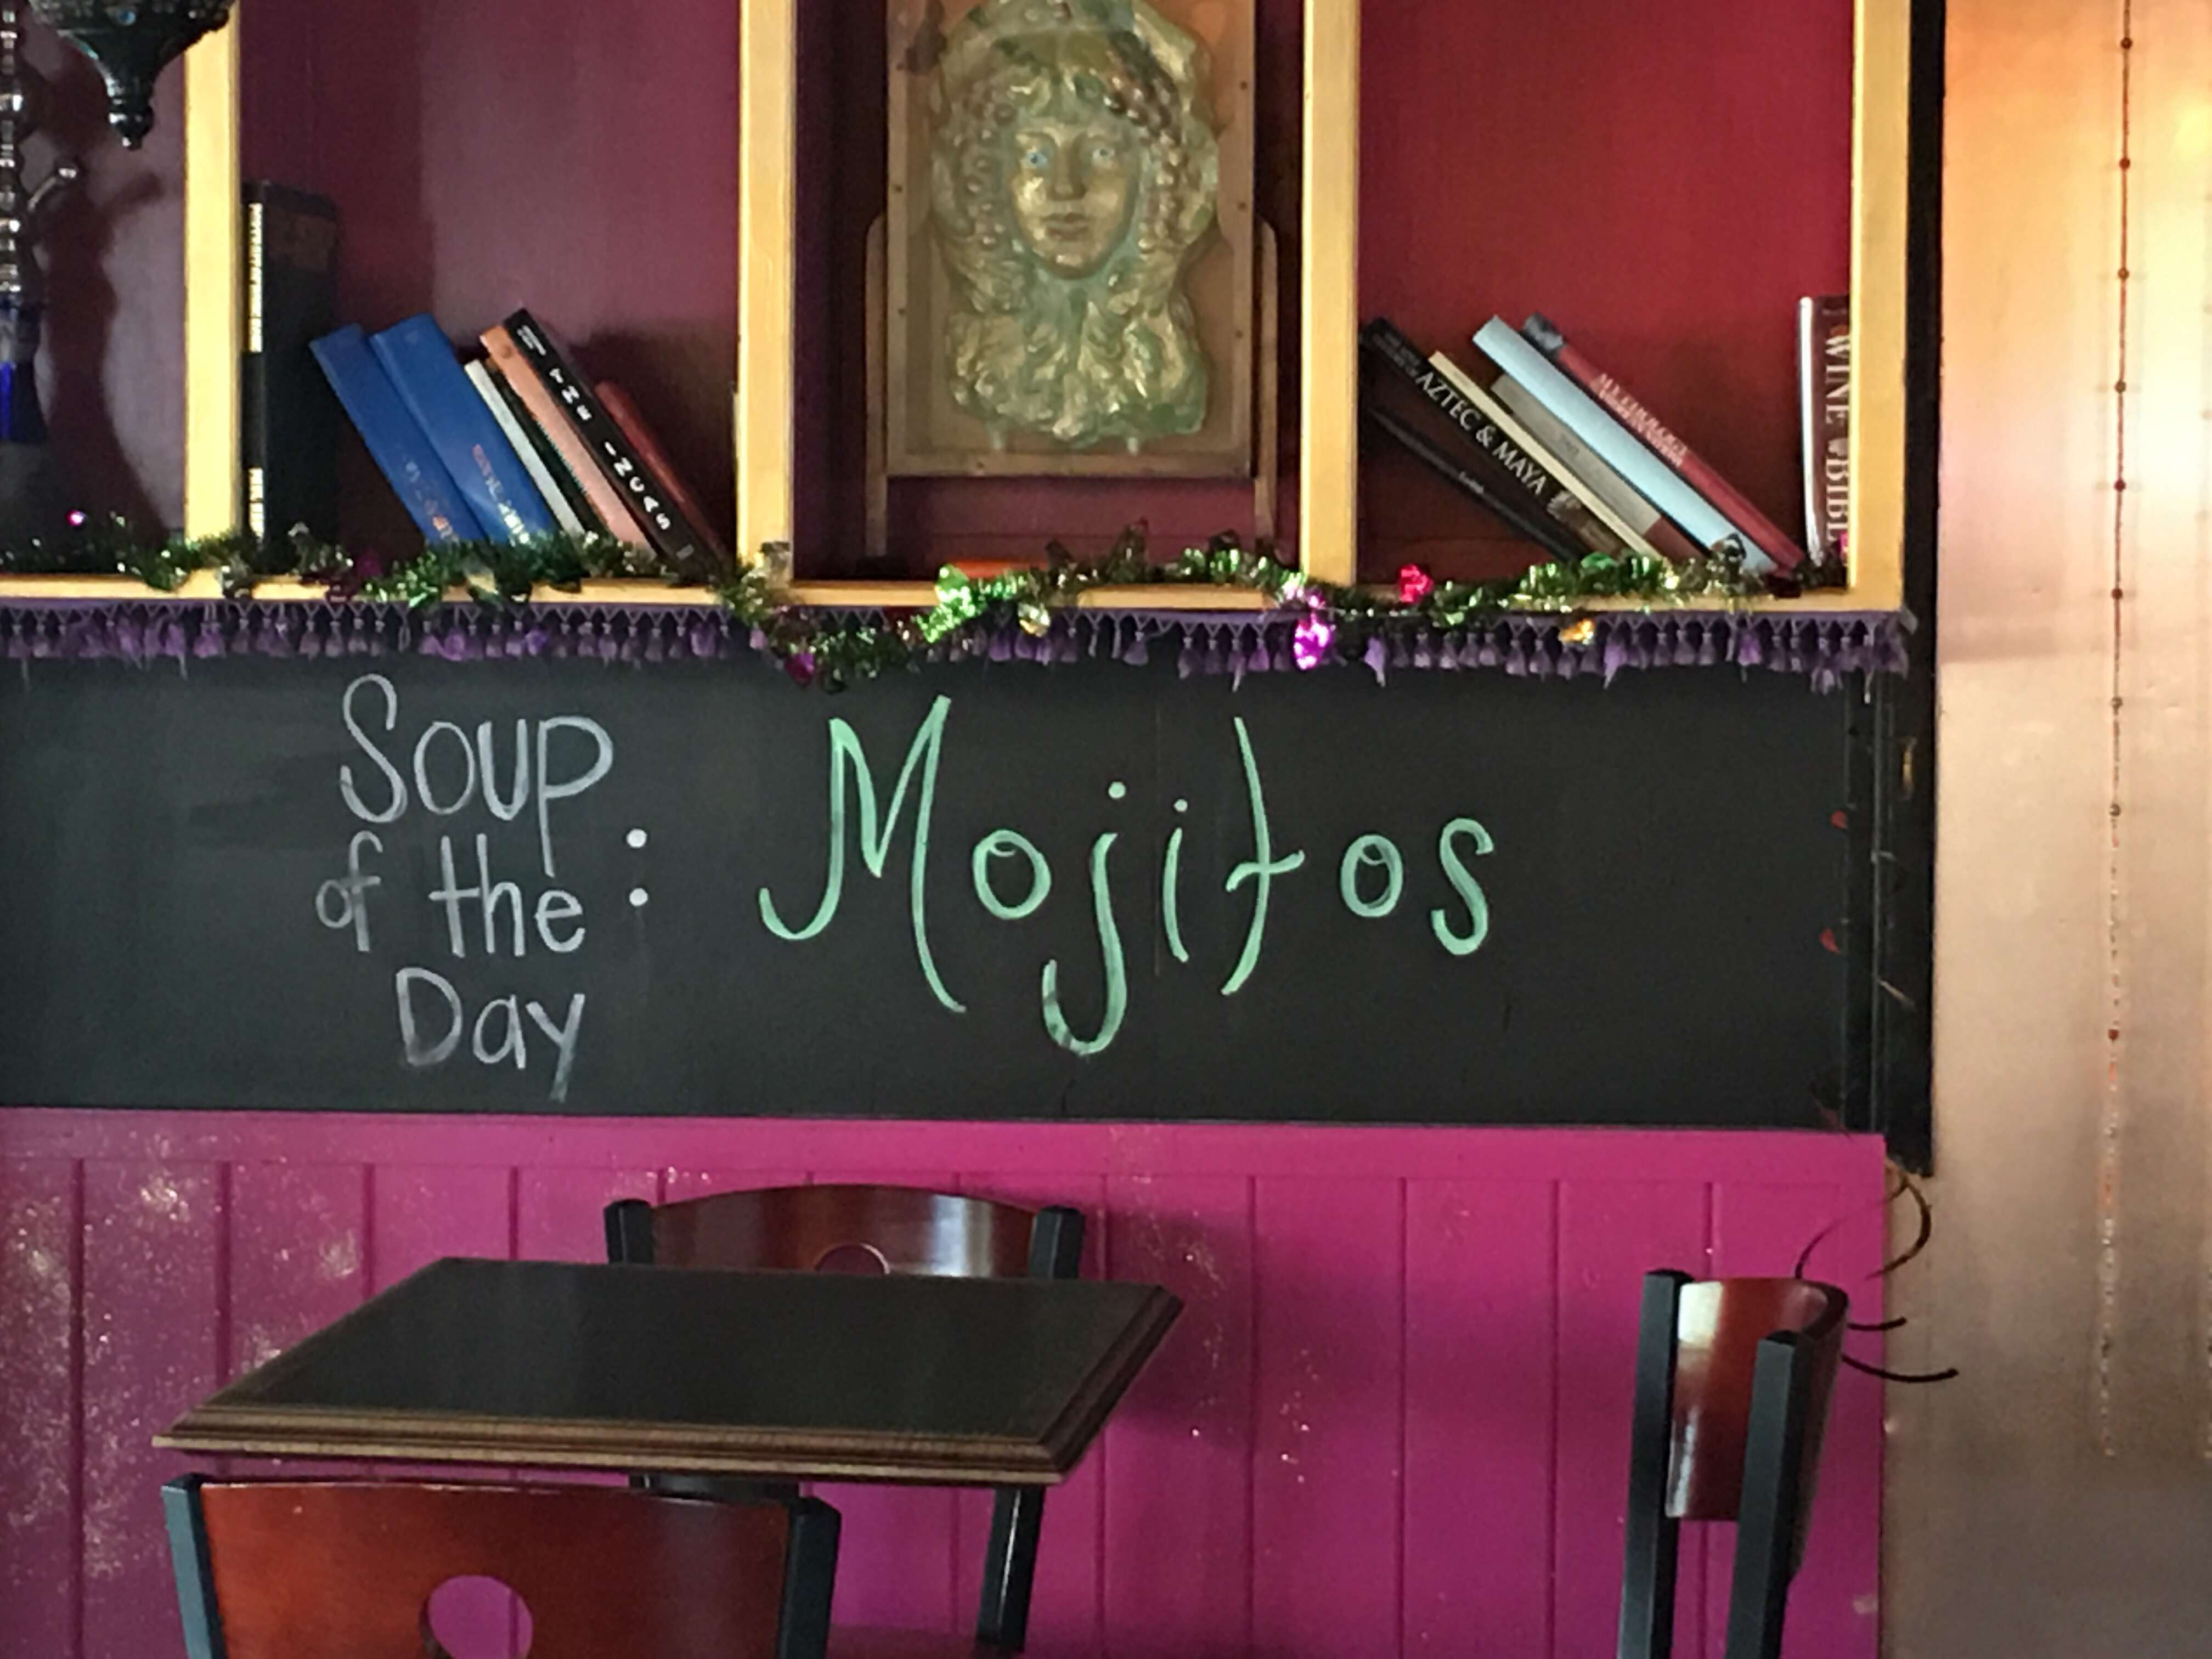 THE INCAS
AZTEC & MAYA
MYTHOLOGY
WINE BIBLE
Soup
of the :
Day
Mojitos